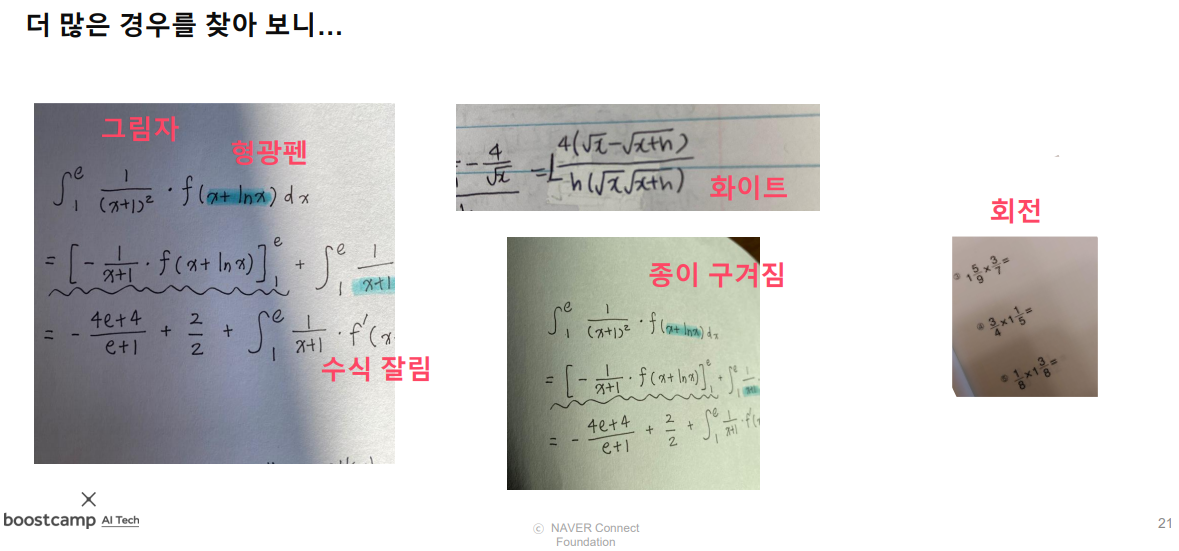 더 많은 경우를 찾아 보니...
그림자
형광펜
∫₁ᵉ 1/(x+1)² · f(x+lnx)dx
= [-1/(x+1) · f(x+lnx)]₁ᵉ + ∫₁ᵉ 1/(x+1)
= - (4e+4)/(e+1) + 2/2 + ∫₁ᵉ 1/(x+1) · f'(x
수식 잘림
- 4/√x = L 4(√x-√x+h)/h(√x√x+h)
화이트
종이 구겨짐
∫₁ᵉ 1/(x+1)² · f(x+lnx)dx
= [-1/(x+1) · f(x+lnx)]₁ᵉ + ∫₁ᵉ
= - (4e+4)/(e+1) + 2/2 + ∫₁ᵉ 1/(x+1) · f'(
회전
③ 1 5/9 × 3/7 =
④ 3/4 × 1 1/5 =
⑤ 1/8 × 1 3/8 =
boostcamp AI Tech
ⓒ NAVER Connect
Foundation
21